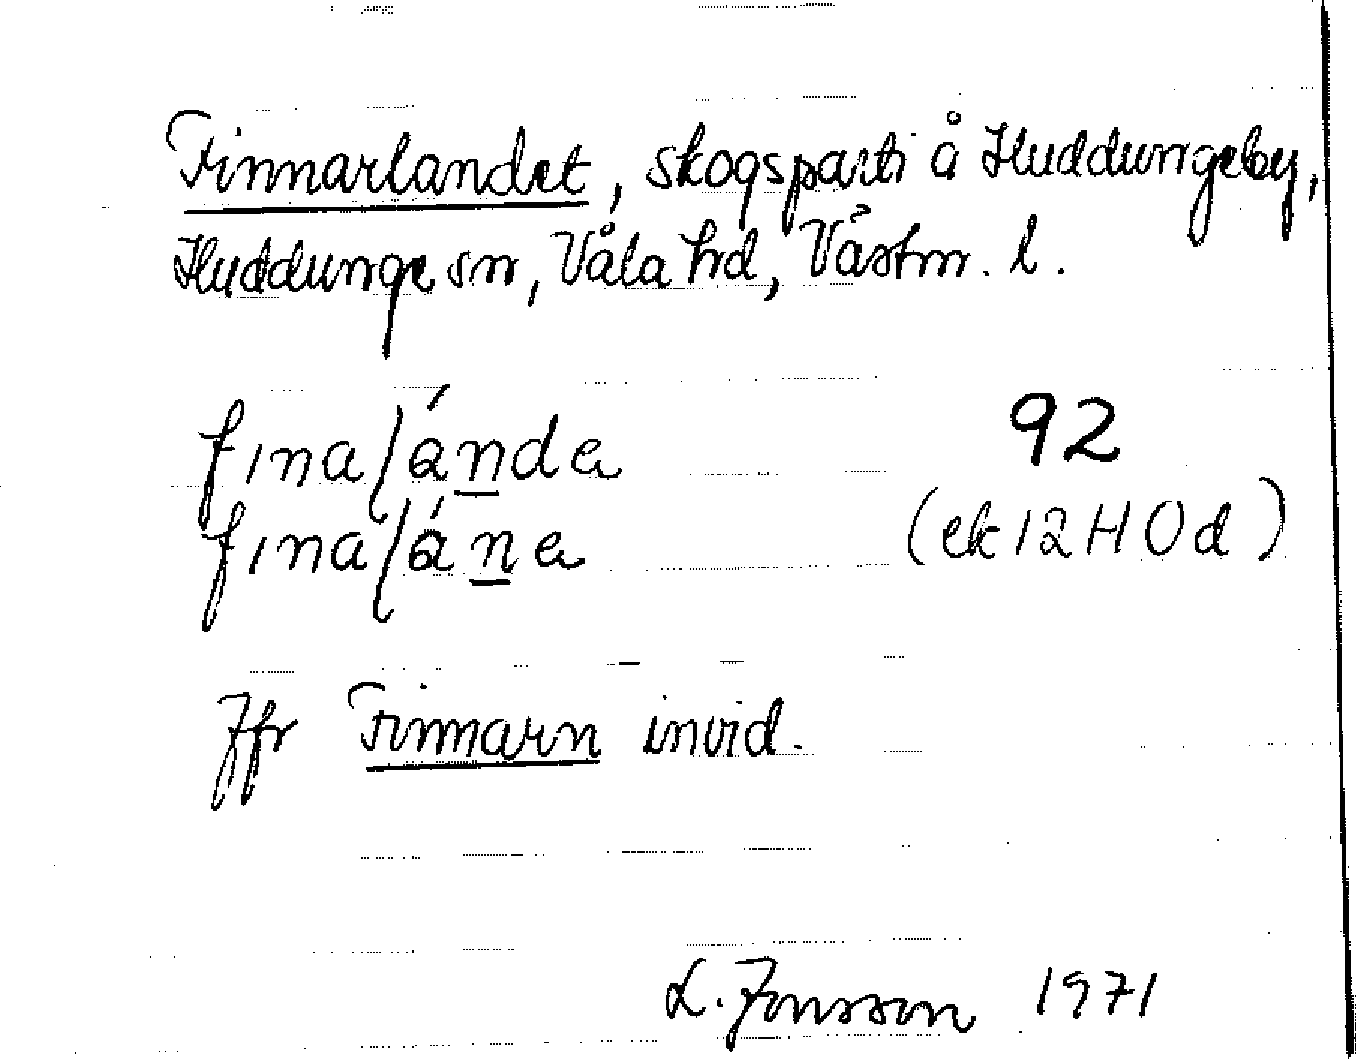 Finnarlandet, skogsparti å Huddungeby,
Huddunge sn, Våla hd, Västm. l.
fınalánda 92
fınalána (ek 12 H 0 d)
Jfr Finnarn invid.
L. Jonsson 1971